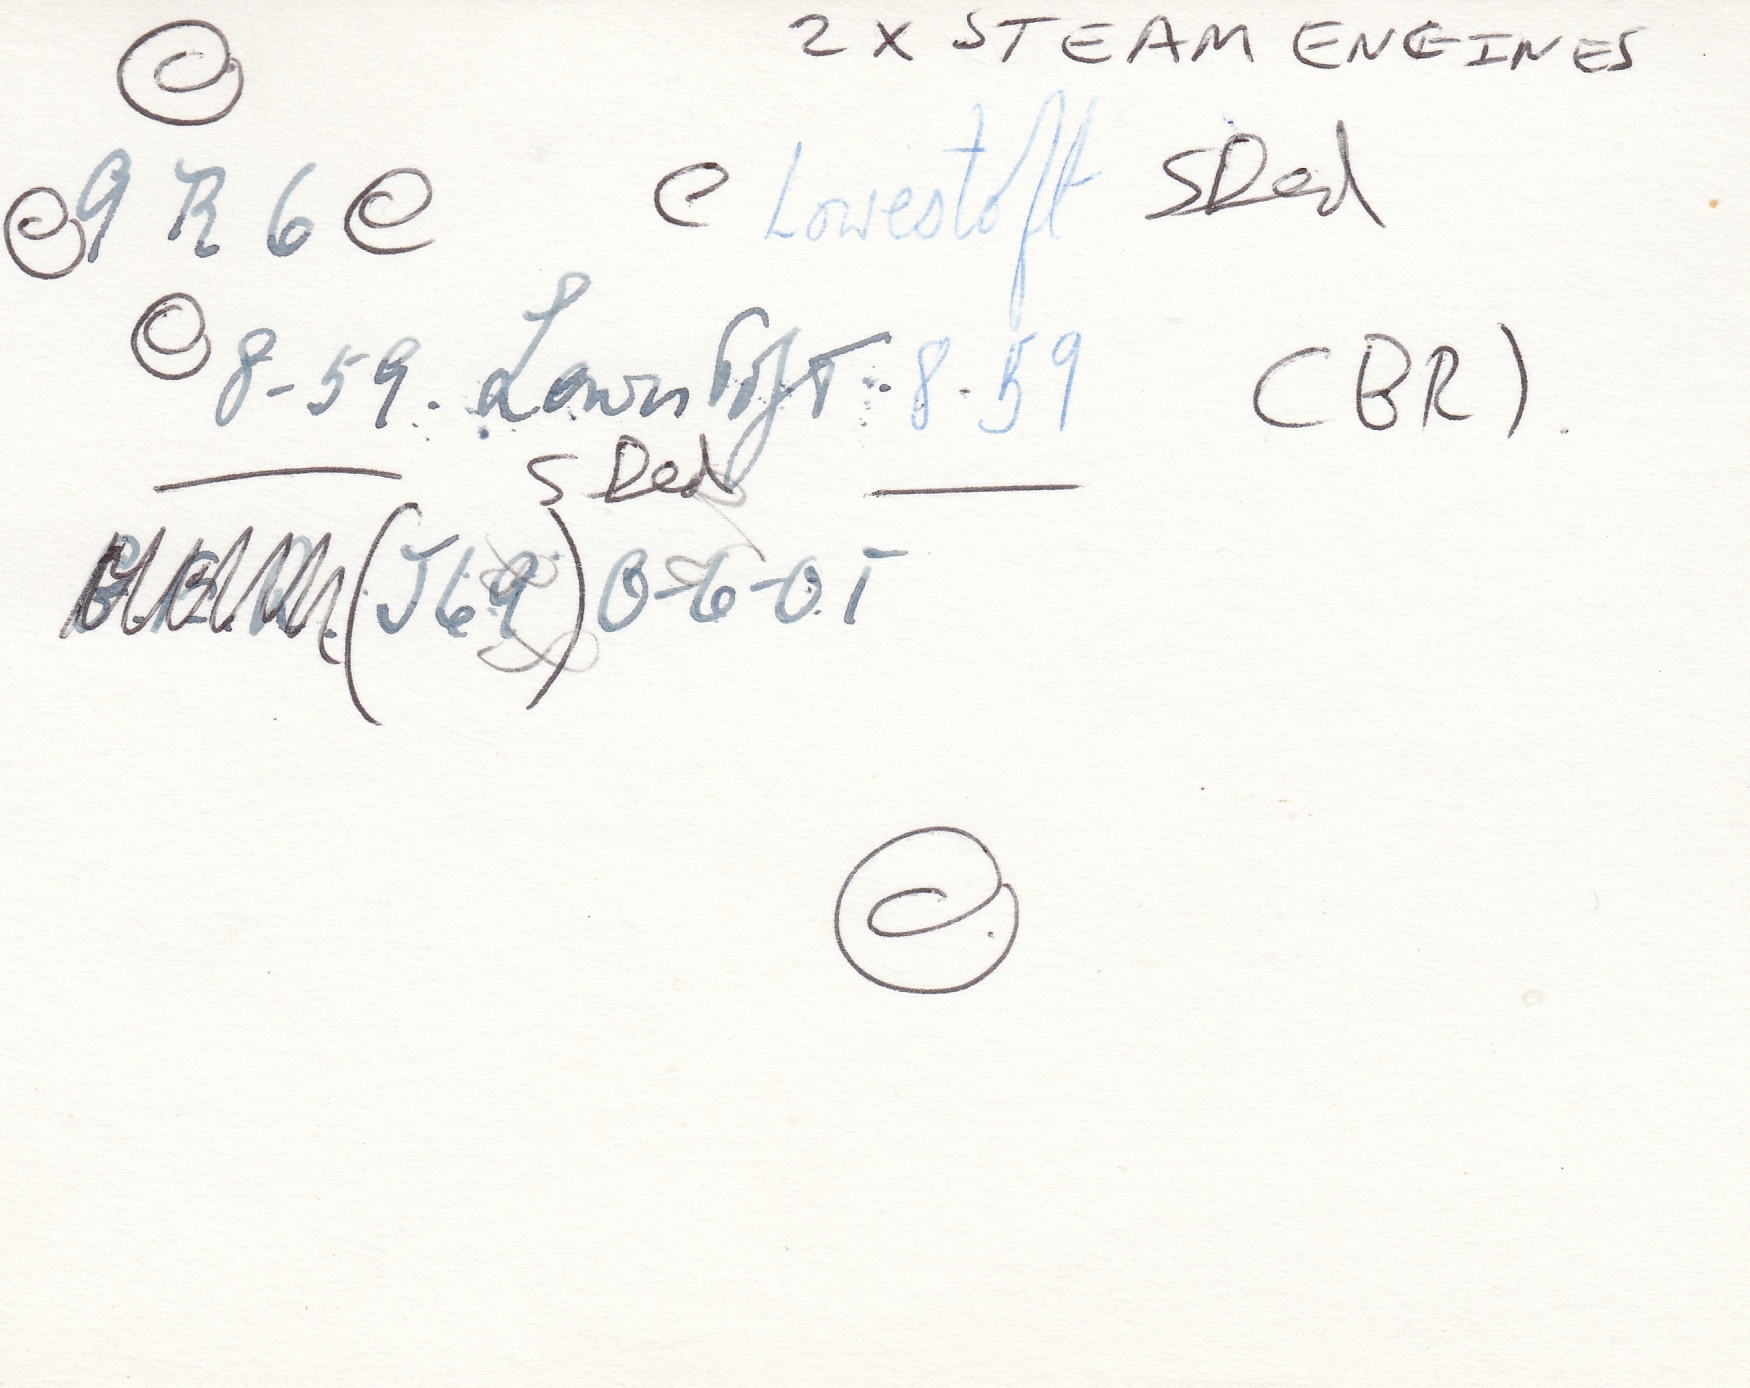 2 X STEAM ENGINES
9 R 6 Lowestoft SDed
8-59. Lowestoft. 8.59 (BR).
SDed
(J69) 0-6-0T